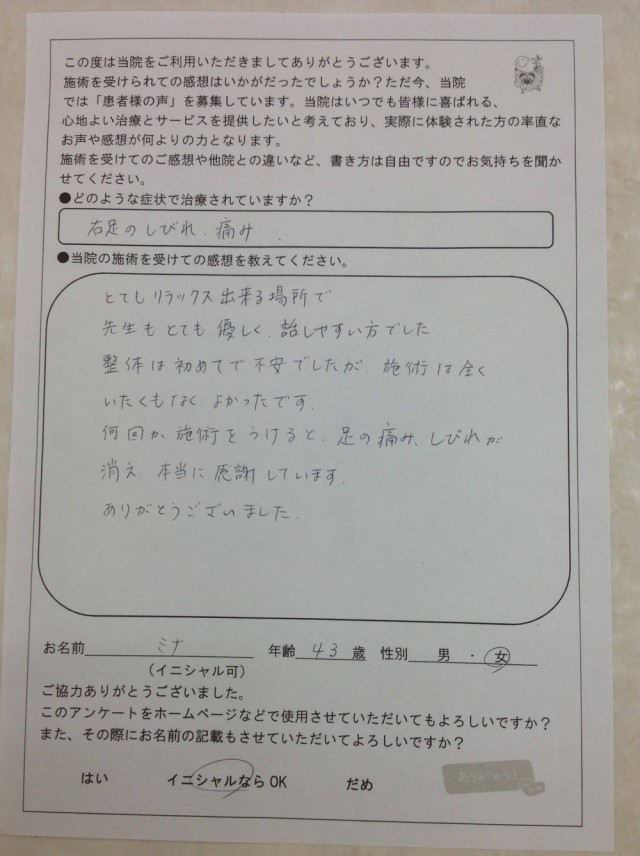 この度は当院をご利用いただきましてありがとうございます。
施術を受けられての感想はいかがだったでしょうか？ただ今、当院
では「患者様の声」を募集しています。当院はいつでも皆様に喜ばれる、
心地よい治療とサービスを提供したいと考えており、実際に体験された方の率直な
お声や感想が何よりの力となります。
施術を受けてのご感想や他院との違いなど、書き方は自由ですのでお気持ちを聞か
せてください。
●どのような症状で治療されていますか？
右足のしびれ、痛み
●当院の施術を受けての感想を教えてください。
とてもリラックス出来る場所で
先生もとても優しく、話しやすい方でした
整体は初めてで不安でしたが、施術は全く
いたくもなくよかったです。
何回か施術をうけると、足の痛み、しびれが
消え、本当に感謝しています。
ありがとうございました。
お名前 ミナ 年齢 43 歳 性別 男 ・ 女
（イニシャル可）
ご協力ありがとうございました。
このアンケートをホームページなどで使用させていただいてもよろしいですか？
また、その際にお名前の記載もさせていただいてよろしいですか？
はい イニシャルならOK だめ
ありがとう